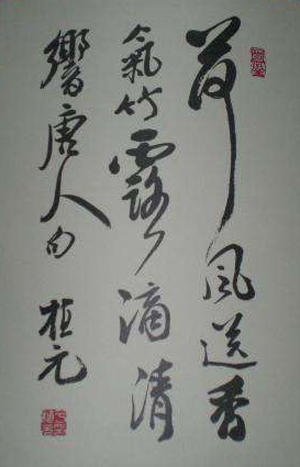 荷風送香
氣竹露滴清
響唐人句 柏元